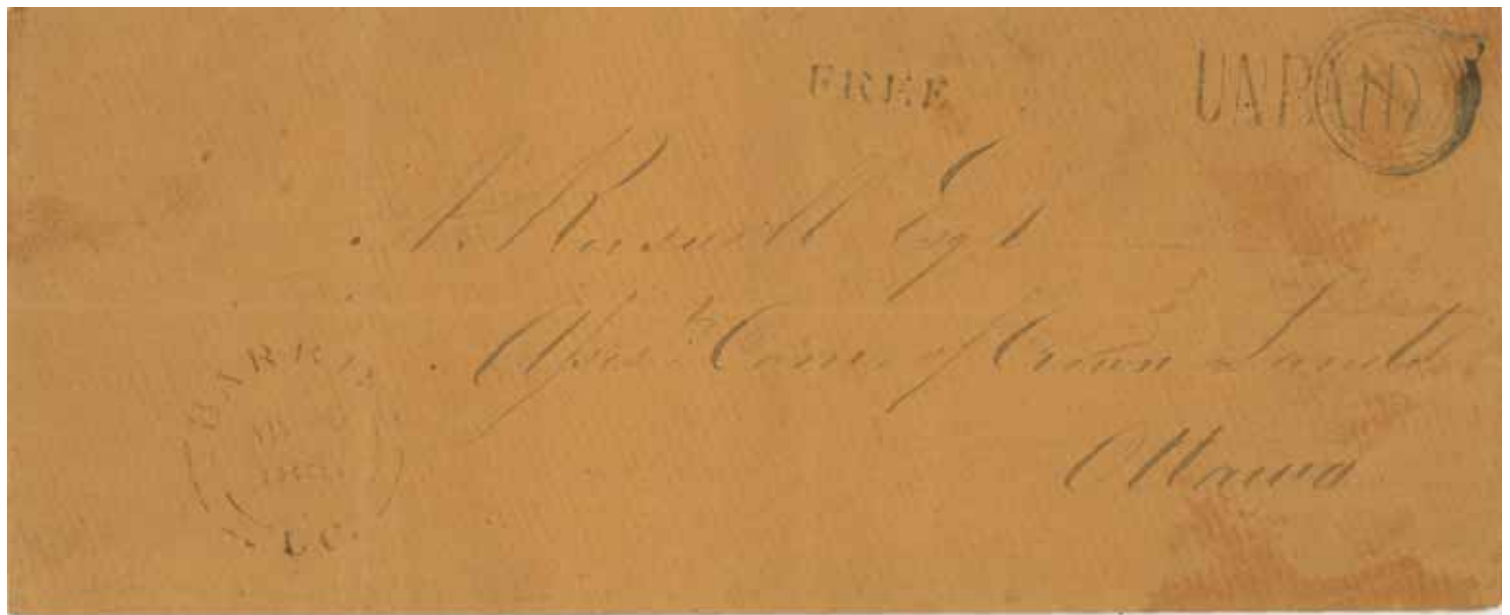 FREE
UNPAID 7
A. Russell Esqr
Assist Comr. of Crown Lands
Ottawa
BARRIE
U.C.